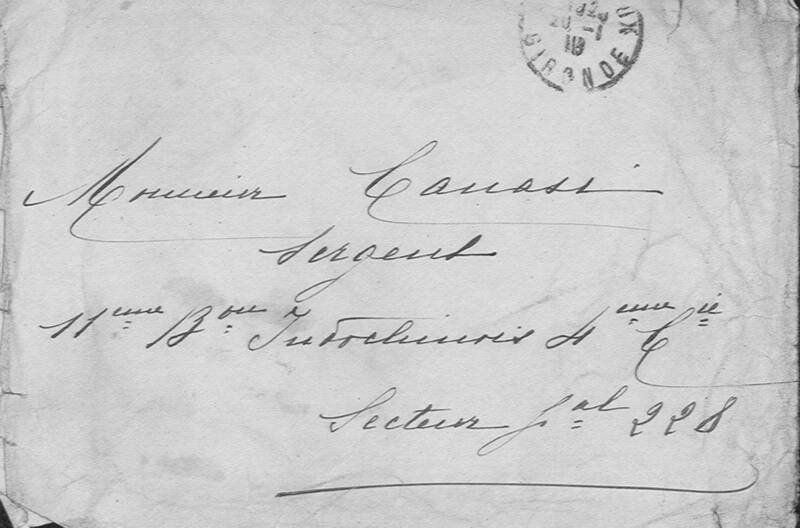 UX
1820
20 -1
18
GIRONDE
Monsieur Canasi
Sergent
11ème Bon Indochinois 4ème Cie
Secteur Pal 228